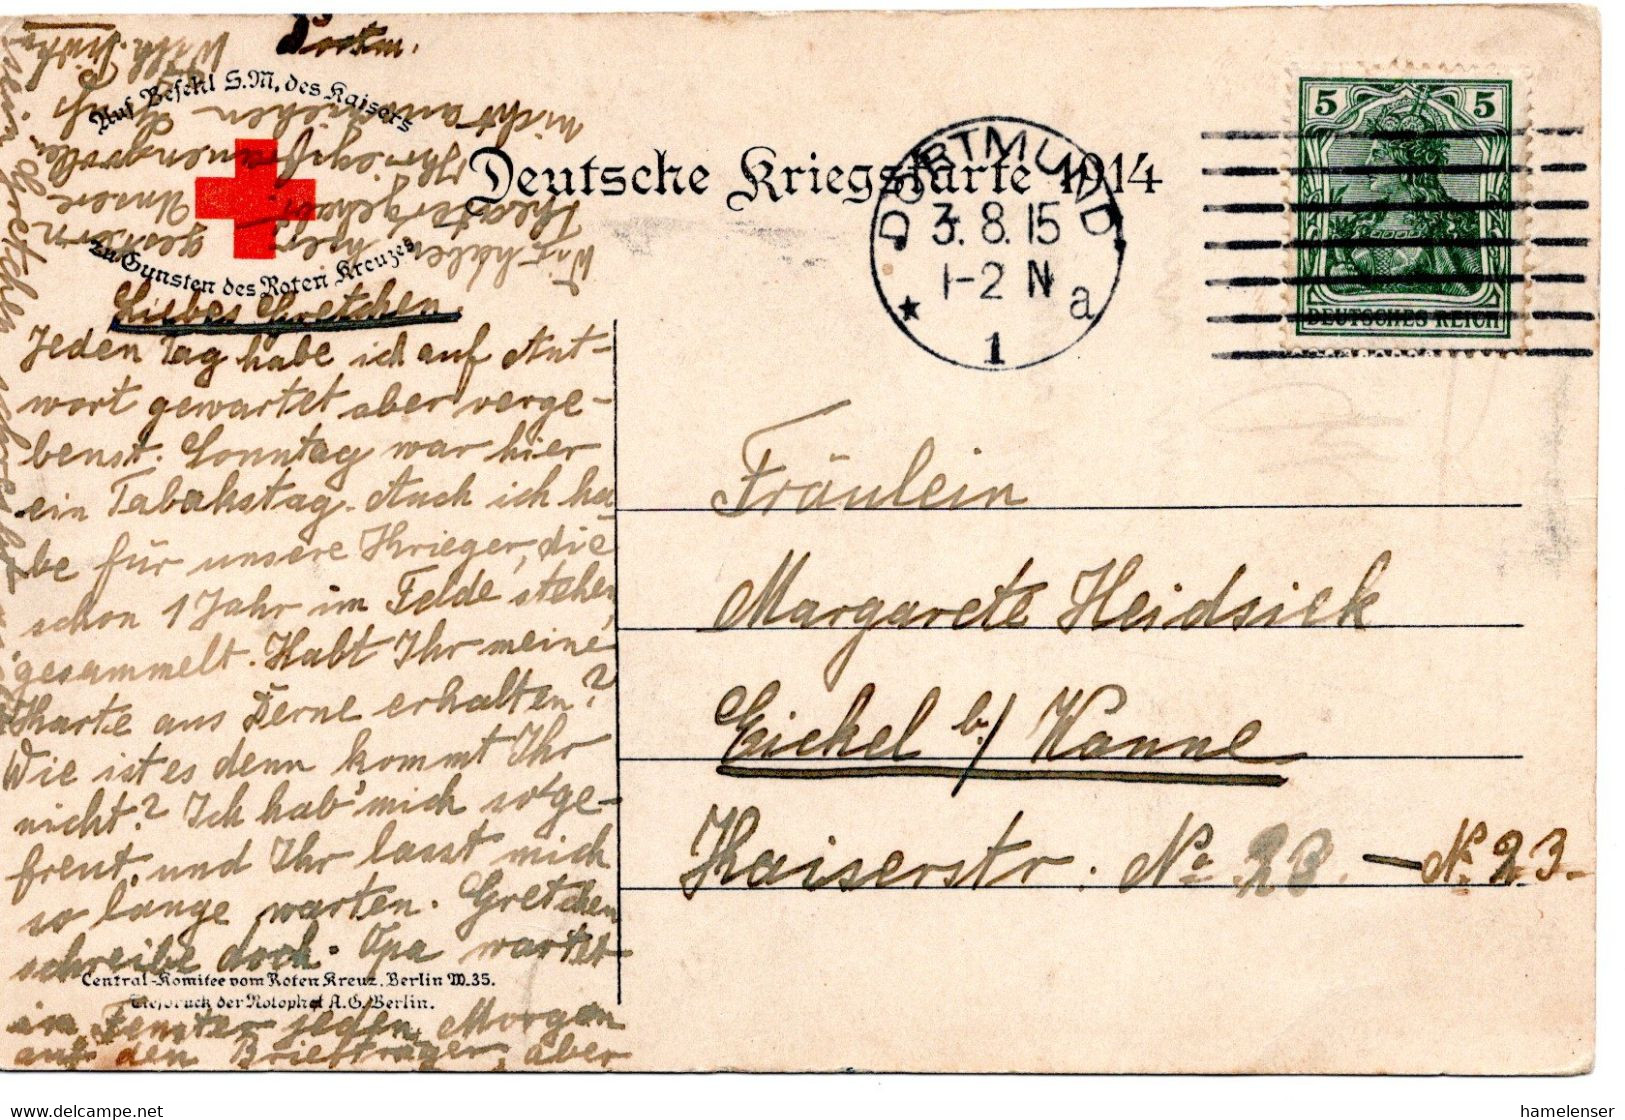 Dortm.
Auf Befehl S.M. des Kaisers
zu Gunsten des Roten Kreuzes
Deutsche Kriegskarte 1914
DORTMUND
3. 8. 15
1-2 N
* 1 a
5 5
DEUTSCHES REICH
Liebes Gretchen.
Jeden Tag habe ich auf Ant-
wort gewartet aber verge-
benst. Sonntag war hier
ein Tabakstag. Auch ich ha
be für unsere Krieger, die
schon 1 Jahr im Felde stehen,
gesammelt. Habt Ihr meine
Karte aus Derne erhalten?
Wie ist es denn kommt Ihr
nicht? Ich hab' mich so ge-
freut, und Ihr lasst mich
so lange warten. Gretchen
schreibe doch. Opa wartet
im Fenster jeden Morgen
auf den Briefträger, aber
kein Gretchen schreibt
Wir haben hier gestern
Unsere
nicht ansehen
Wilh.
Central-Komitee vom Roten Kreuz. Berlin W.35.
Tiefdruck der Rotophot A.G. Berlin.
Fräulein
Margarete Heidsiek
Eickel b/ Wanne
Kaiserstr. No 23. — No 23.
hamelenser
www.delcampe.net